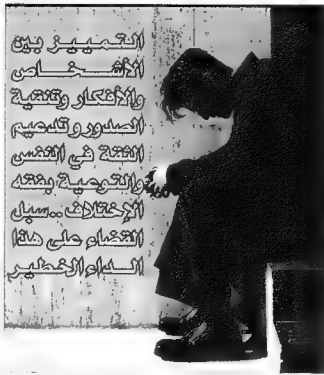 التمييز بين
الأشخاص
والأفكار وتنقية
الصدور وتدعيم
الثقة في النفس
والتوعية بفقه
الإختلاف..سبل
القضاء على هذا
الداء الخطير